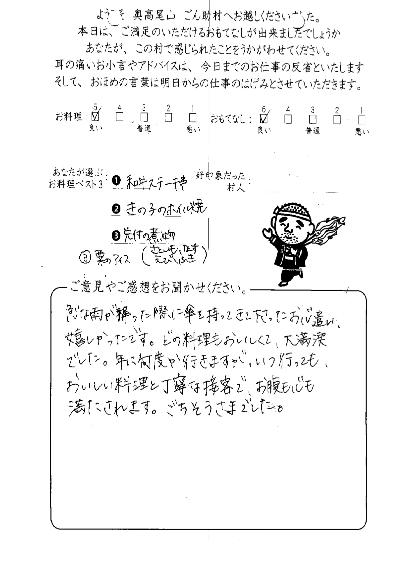 ようこそ 奥高尾山 ごん助村へお越しくださいました。
本日は、ご満足のいただけるおもてなしが出来ましたでしょうか
あなたが、この村で感じられたことをうかがわせてください。
耳の痛いお小言やアドバイスは、今日までのお仕事の反省といたします
そして、おほめの言葉は明日からの仕事のはげみとさせていただきます。
お料理 5 4 3 2 1
良い 普通 悪い
おもてなし 5 4 3 2 1
良い 普通 悪い
あなたが選ぶ
お料理ベスト3
❶ 和牛ステーキ串
❷ きの子のホイル焼
❸ 先付の煮物
③ 栗のアイス
好印象だった
村人
ご意見やご感想をお聞かせください。
急な雨が振った際に傘を持ってきて下さったお心遣い、
嬉しかったです。どの料理もおいしくて、大満足
でした。年に何度か行きますが、いつ行っても、
おいしい料理と丁寧な接客で、お腹も心も
満たされます。ごちそうさまでした。